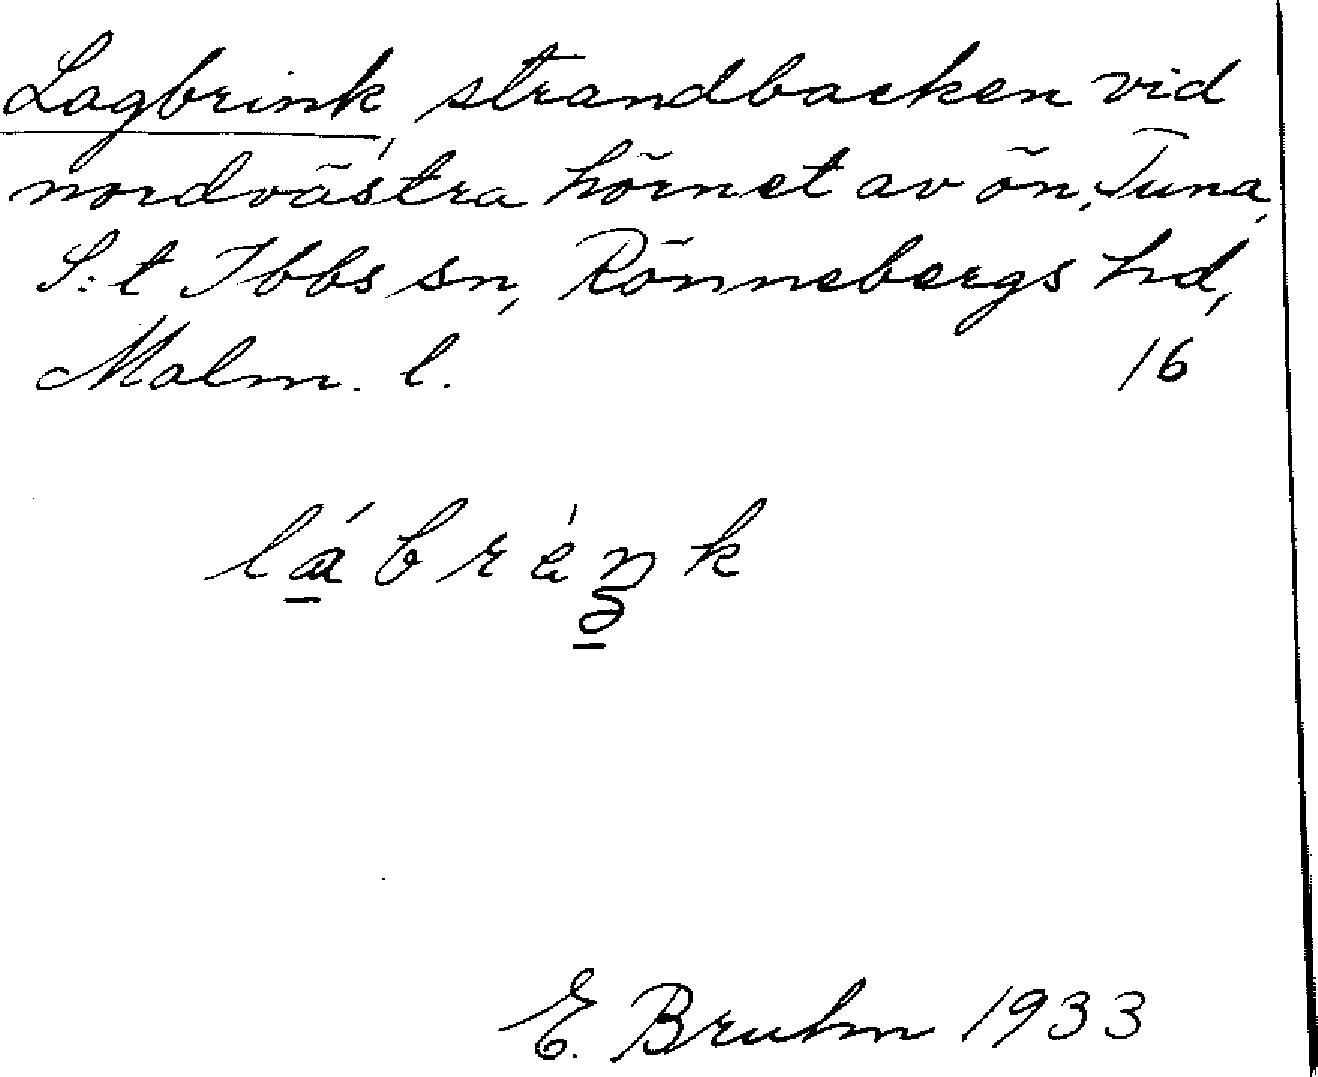 Lagbrink, strandbacken vid
nordvästra hörnet av ön, Tuna,
S:t Ibbs sn, Rönnebergs hd,
Malm. l. 16
E. Bruhn 1933